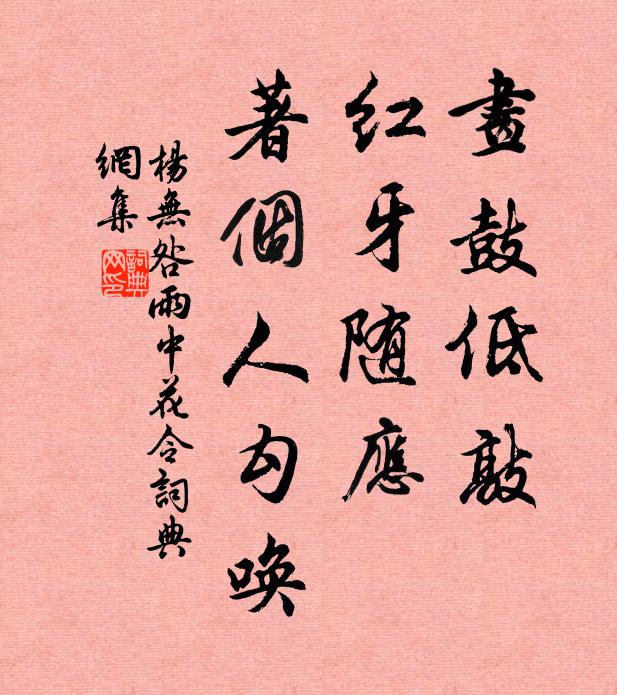 畫鼓低敲
紅牙随應
著個人勾喚
楊無咎雨中花令詞典
網集
詞典
网印